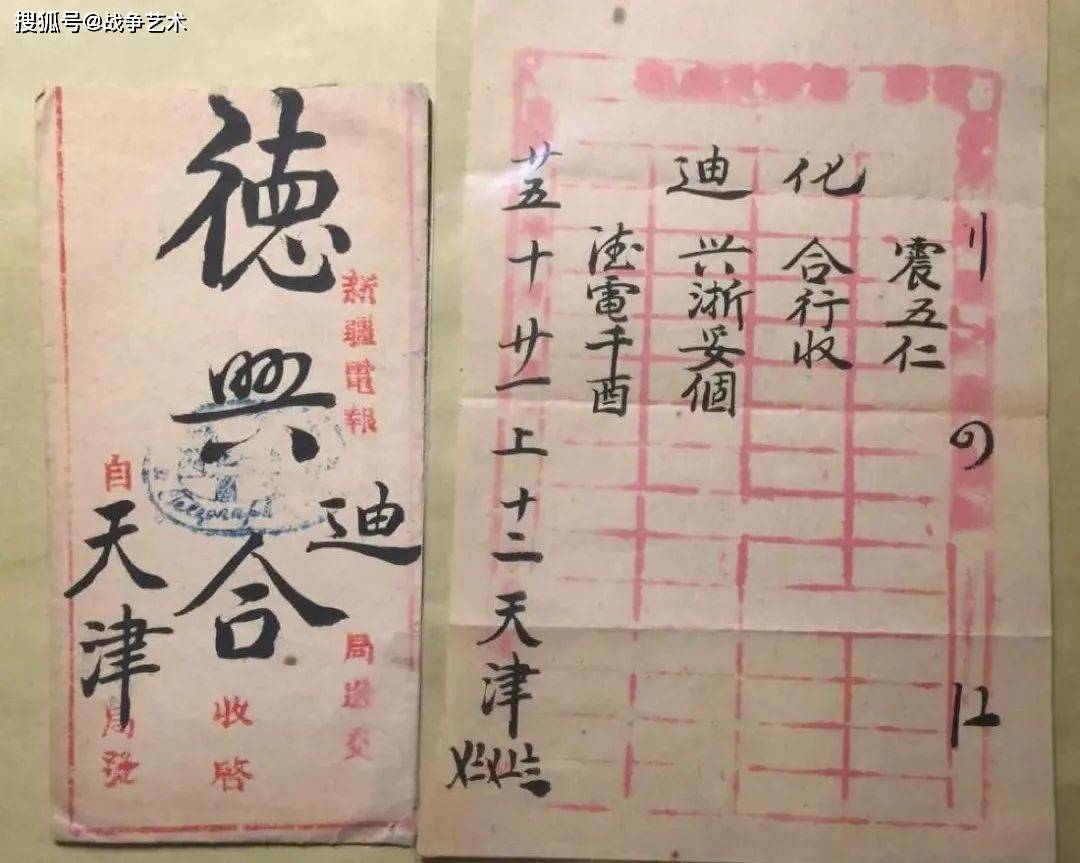 搜狐号@战争艺术
新疆電報
迪
局送交
德興合
收啓
自
天津
局發
震五仁
化
合行收
迪
兴浙妥個
電手酉
廿五
十
廿一
上十二
天津